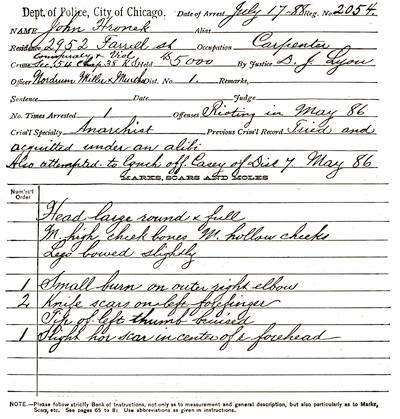 Dept. of Police, City of Chicago. Date of Arrest July 17-88 Reg. No. 2054.
NAME John Hronek Alias
Residence 2952 Farrel st Occupation Carpenter
Conspiracy & Viol
Crime Sec. 54 Chap 38 Held $5000 By Justice D. J. Lyon
Officer Nordrum Miller & Dist. No. 1. Remarks,
Sentence Date Judge
No. Times Arrested 1 Offenses Rioting in May 86
Crim'l Specialty Anarchist Previous Crim'l Record Tried and
acquitted under an alibi
Also attempted to Lynch off. Casey of Dist 7 May 86
MARKS, SCARS AND MOLES
Num'r'l Order
Head large round & full
M. high cheek bones M. hollow cheeks
Legs bowed slightly
1 Small burn on outer right elbow
2 Knife scars on left forefinger
Tip of left thumb bruised
1 Slight hor scar in centre of forehead
NOTE.—Please follow strictly Book of Instructions, not only as to measurement and general description, but also particularly as to Marks,
Scars, etc. See pages 65 to 8 Use abbreviations as given in instructions.